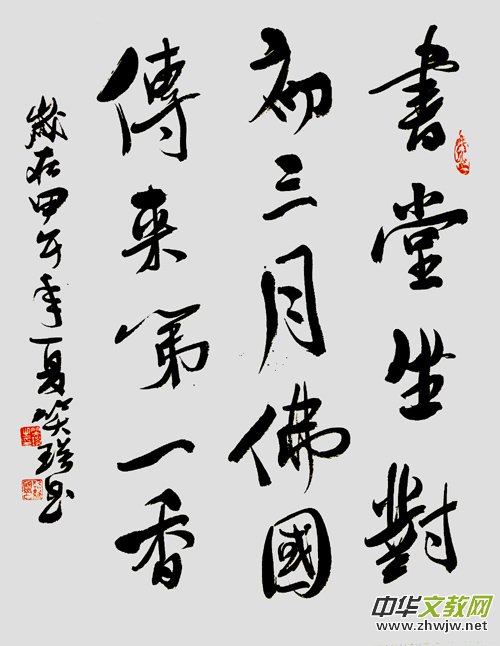 書堂坐對
初三月佛國
傳来第一香
歲在甲午年夏笑瑢書
中华文教网
www.zhwjw.net